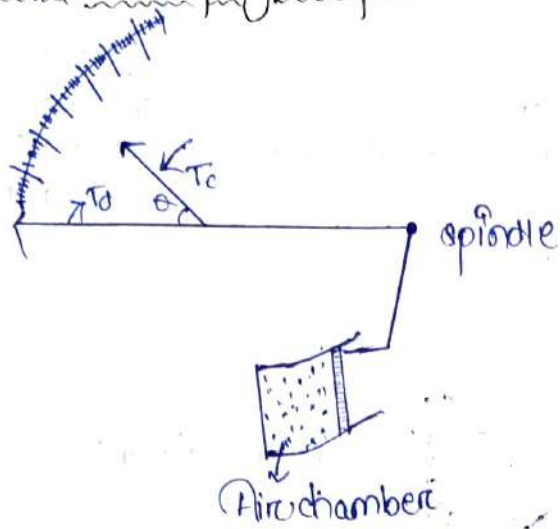 Tc
Td
θ
spindle
Air chamber.